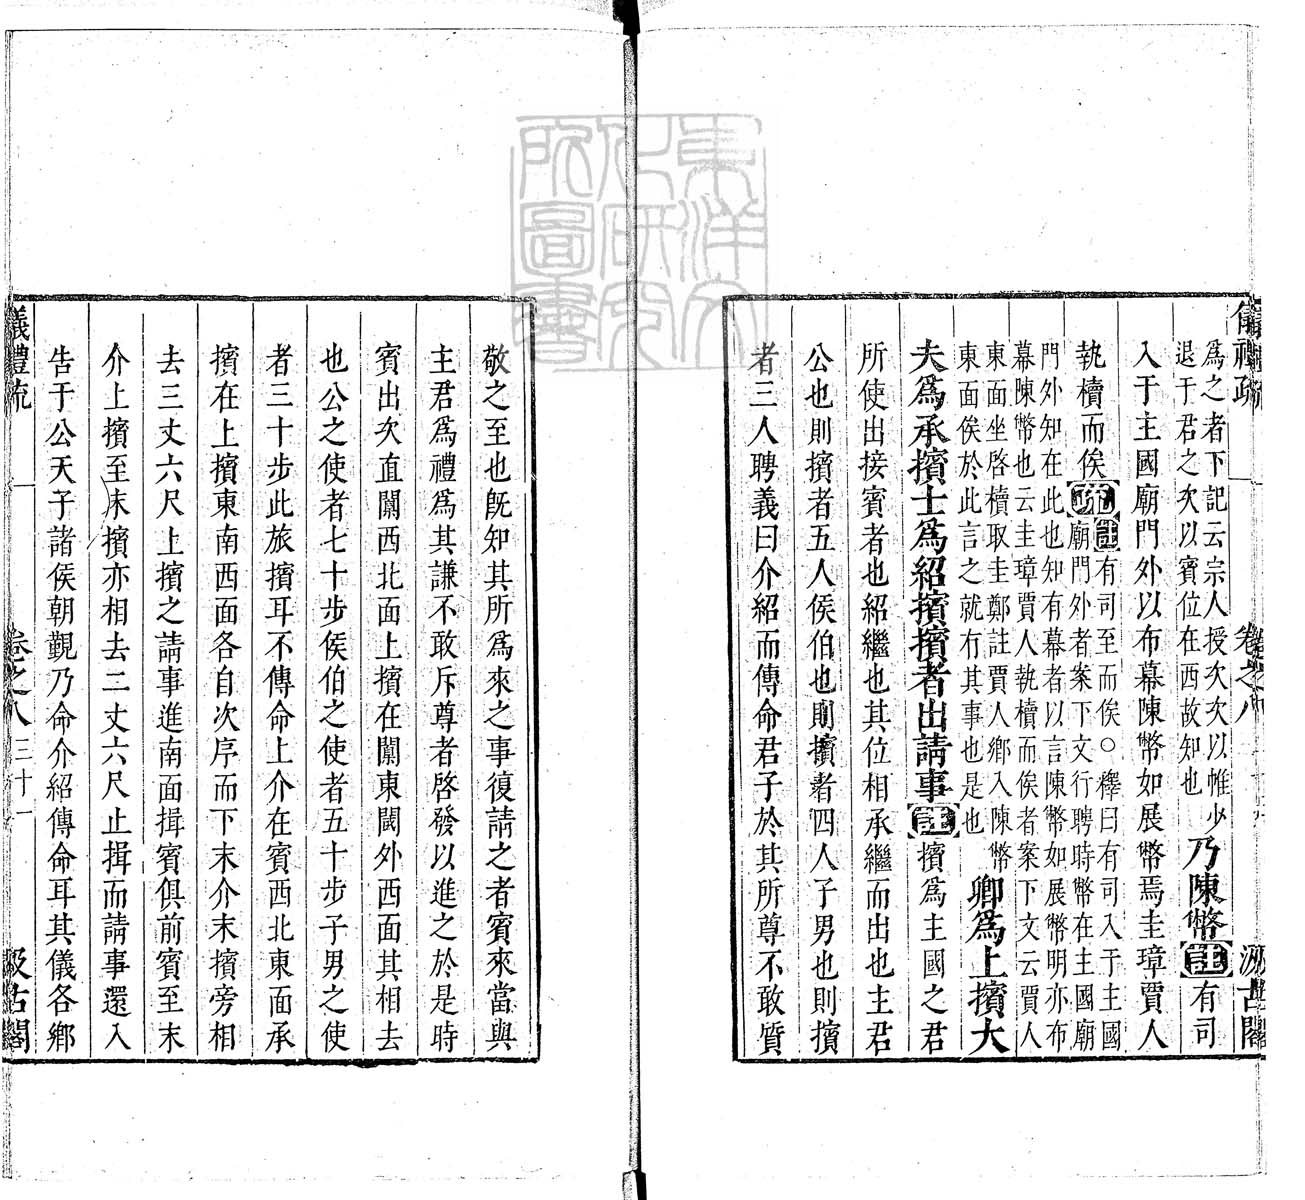 爲之者下記云宗人授次次以帷少
退于君之次以賓位在西故知也
乃陳幣註有司
入于主國廟門外以布幕陳幣如展幣焉圭璋賈人
執櫝而俟疏註有司至而俟○釋曰有司入于主國
廟門外者案下文行聘時幣在主國廟
門外知在此也知有幕者以言陳幣如展幣明亦布
幕陳幣也云圭璋賈人執櫝而俟者案下文云賈人
東面坐啓櫝取圭鄭註賈人鄉入陳幣
東面俟於此言之就有其事也是也
卿爲上擯大
夫爲承擯士爲紹擯擯者出請事註擯爲主國之君
所使出接賓者也紹繼也其位相承繼而出也主君
公也則擯者五人侯伯也則擯者四人子男也則擯
者三人聘義曰介紹而傳命君子於其所尊不敢質
敬之至也旣知其所爲來之事復請之者賓來當與
主君爲禮爲其謙不敢斥尊者啓發以進之於是時
賓出次直闑西北面上擯在闑東閾外西面其相去
也公之使者七十步侯伯之使者五十步子男之使
者三十步此旅擯耳不傳命上介在賓西北東面承
擯在上擯東南西面各自次序而下末介末擯旁相
去三丈六尺上擯之請事進南面揖賓俱前賓至末
介上擯至末擯亦相去三丈六尺止揖而請事還入
告于公天子諸侯朝覲乃命介紹傳命耳其儀各鄉
儀禮疏
卷之八
三十一
汲古閣